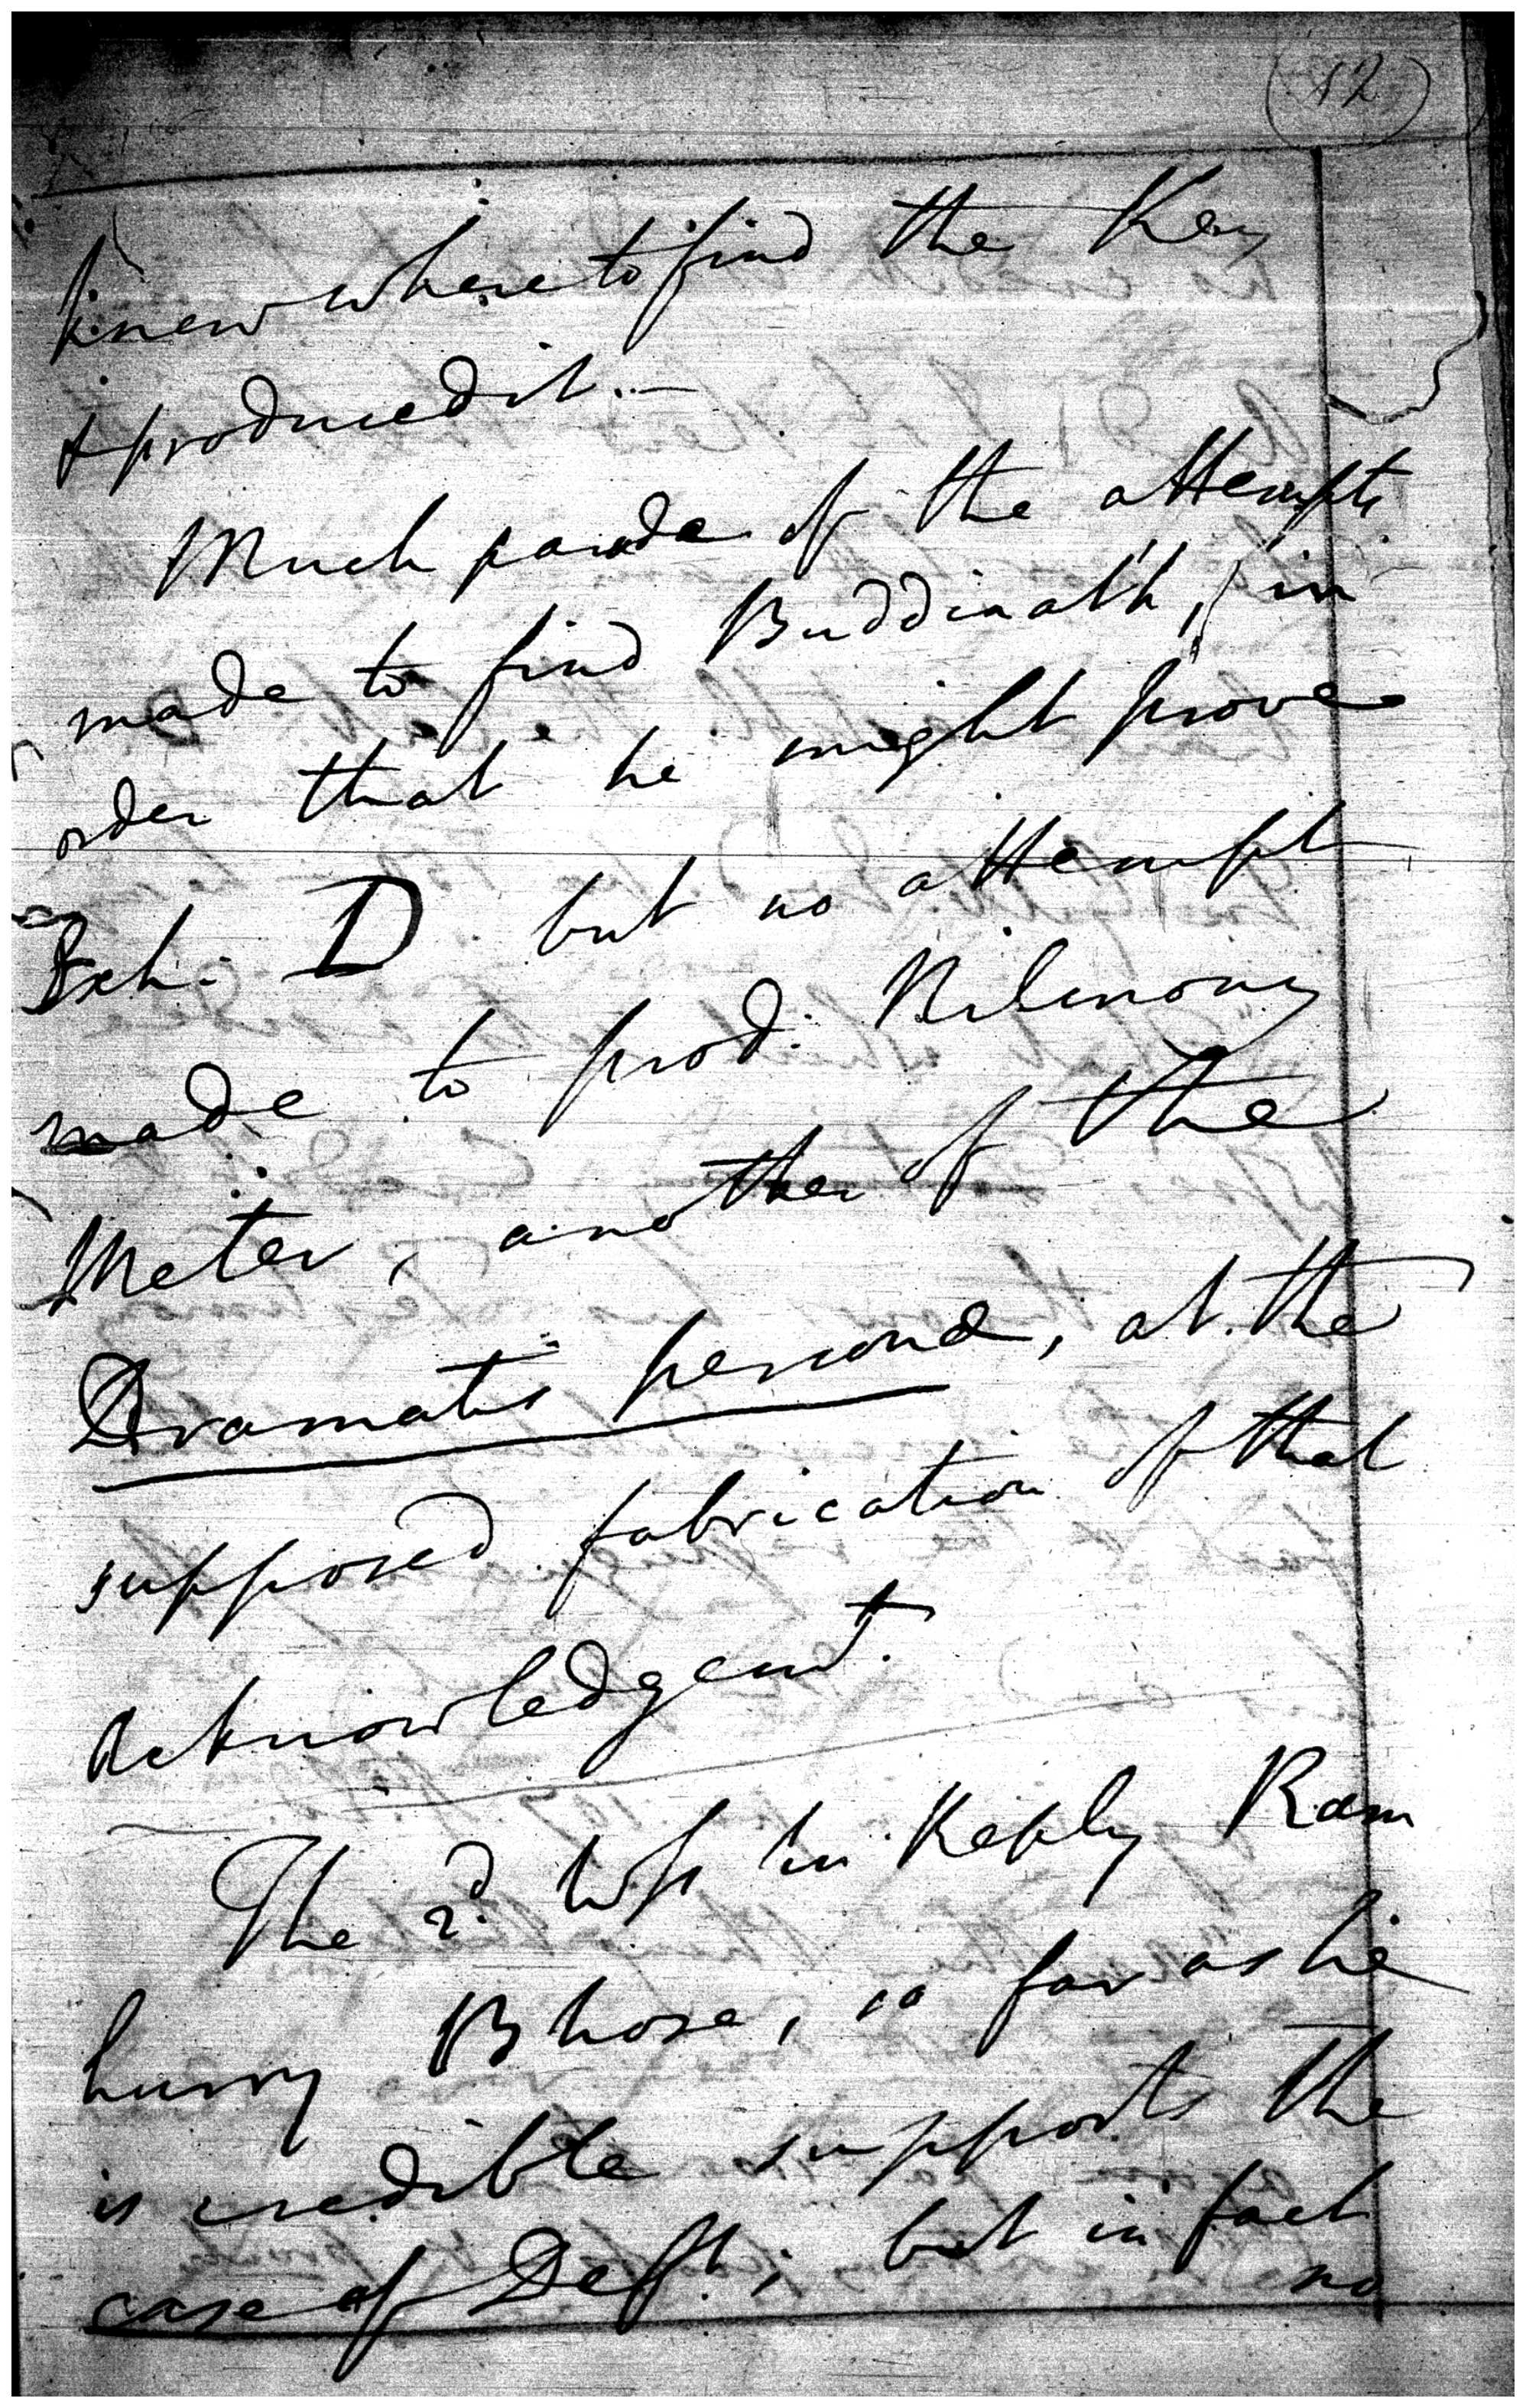 (12)
knew where to find the Key
& produced it. —
Much parade of the attempts
made to find Buddinath, in
order that he might prove
Exh: D but no attempt
made to prod: Nilmony
Meter, another of the
Dramatis personæ, at the
supposed fabrication of that
Acknowledgemt.
The 2d. Wss in Reply Ram
hurry Bhose, so far as he
is credible supports the
case of Deft; but in fact
no